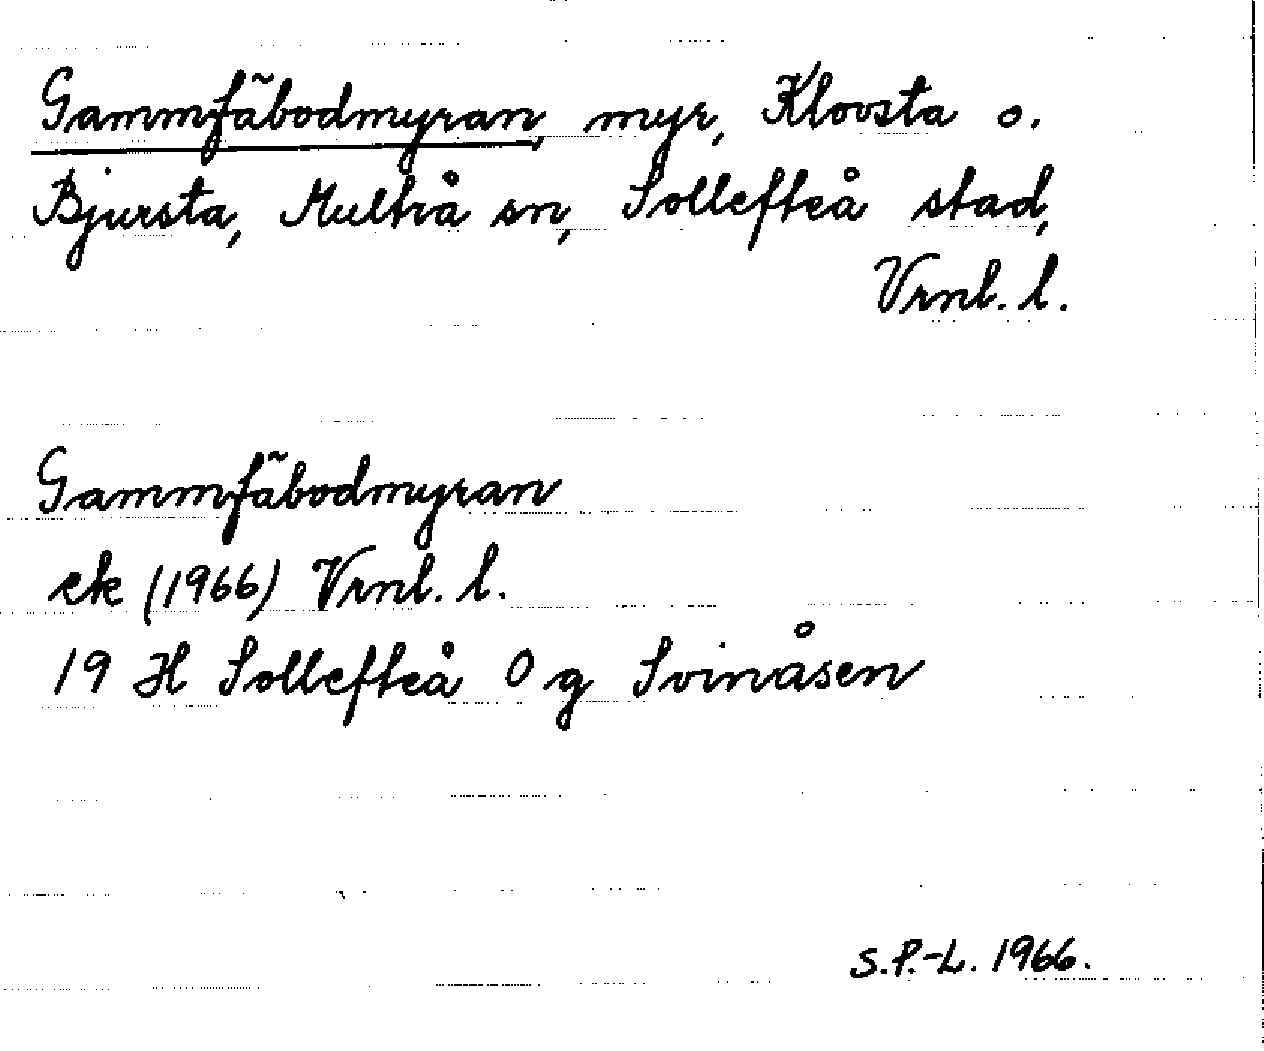 Gammfäbodmyran, myr, Klovsta o.
Bjursta, Multrå sn, Sollefteå stad,
Vrnl. l.
Gammfäbodmyran
ek (1966) Vrnl. l.
19 H Sollefteå 0 g Svinåsen
S.P.-L. 1966.